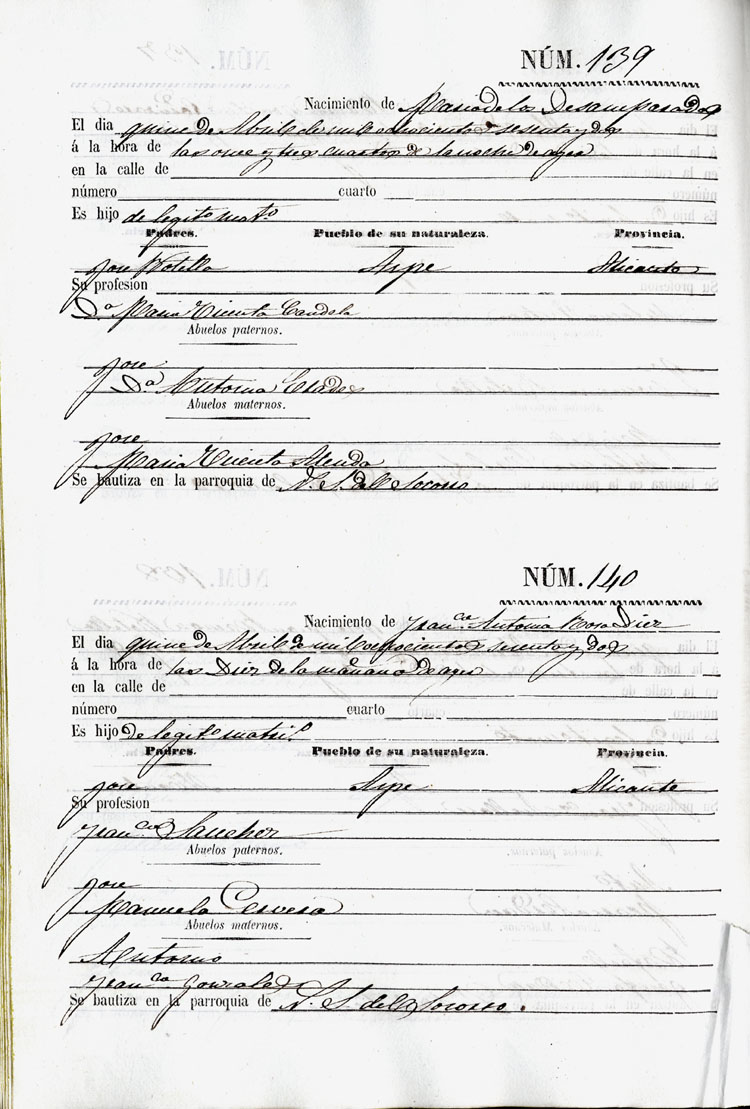 NÚM. 139
Nacimiento de Maria de los Desamparados
El dia quince de Abril de mil ochocientos sesenta y dos
á la hora de las once y tres cuartos de la noche de ayer
en la calle de
número cuarto
Es hijo de legit.º mat.º
Padres. Pueblo de su naturaleza. Provincia.
Jose Botella Aspe Alicante
Su profesion
D.ª Maria Vicenta Candela
Abuelos paternos.
Jose
D.ª Antonia
Abuelos maternos.
Jose
Maria Vicenta
Se bautiza en la parroquia de N. S. del Socorro
NÚM. 140
Nacimiento de Fran.ca Antonia Rosa Dier
El dia quince de Abril de mil ochocientos sesenta y dos
á la hora de las Diez de la mañana de ayer
en la calle de
número cuarto
Es hijo de legit.º matri.º
Padres. Pueblo de su naturaleza. Provincia.
Jose Aspe Alicante
Su profesion
Fran.ca Sanchez
Abuelos paternos.
Jose
Manuela Cervera
Abuelos maternos.
Antonio
Fran.ca Gonzales
Se bautiza en la parroquia de N. S. del Socorro.